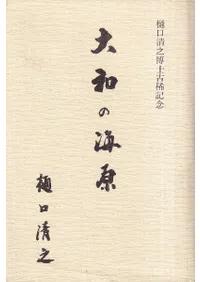 樋口清之博士古稀記念
大和の海原
樋口清之